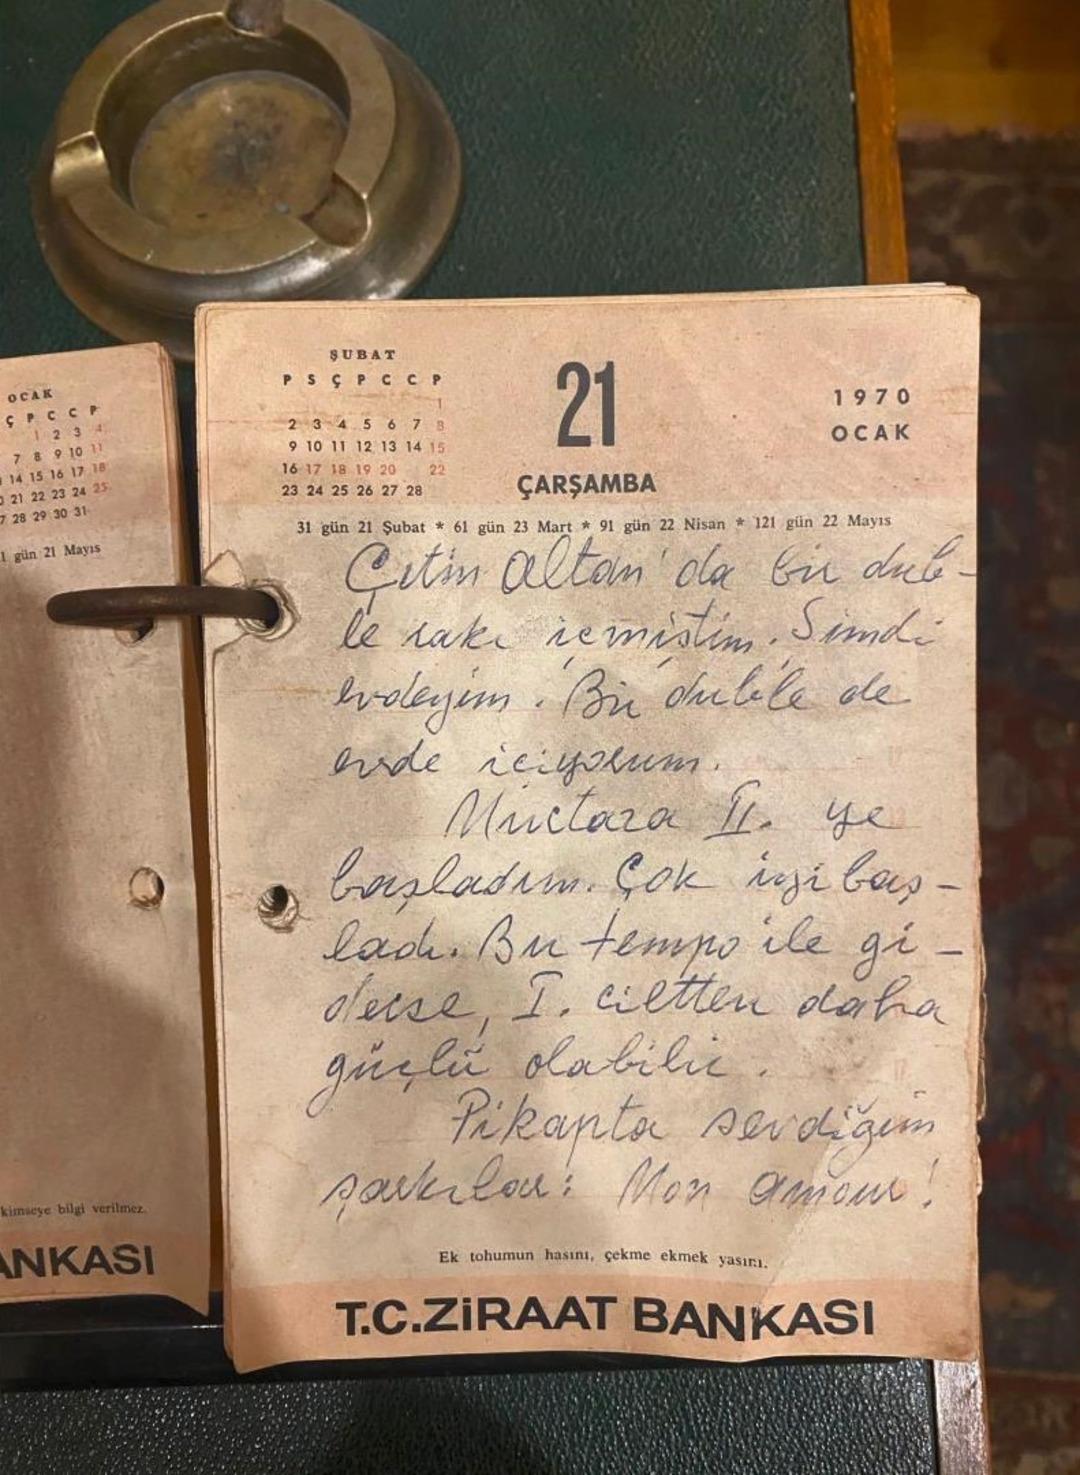 OCAK
Ç P C C P
1 2 3 4
7 8 9 10 11
14 15 16 17 18
21 22 23 24 25
28 29 30 31
gün 21 Mayıs
kimseye bilgi verilmez.
ANKASI
ŞUBAT
P S Ç P C C P
1
2 3 4 5 6 7 8
9 10 11 12 13 14 15
16 17 18 19 20 22
23 24 25 26 27 28
21
ÇARŞAMBA
1970
OCAK
31 gün 21 Şubat * 61 gün 23 Mart * 91 gün 22 Nisan * 121 gün 22 Mayıs
Çetin Altan'da bir dub-
le rakı içmiştim. Şimdi
evdeyim. Bir duble de
evde içiyorum.
II. ye
başladım. Çok iyi baş-
ladı. Bu tempo ile gi-
derse, I. ciltten daha
güçlü olabilir.
Pikapta sevdiğim
şarkılar: Mon amour!
Ek tohumun hasını, çekme ekmek yasını.
T.C.ZİRAAT BANKASI